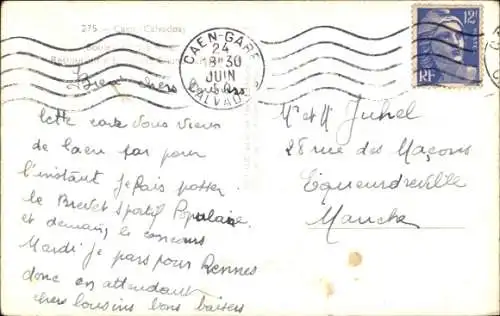 275 - Caen (Calvados)
CAEN-GARE
24
18H30
JUIN
CALVADOS
12F
RF
Bien chers Cousins
Cette carte vous vient
de Caen car pour
l'instant je fais passer
le Brevet Sportif Populaire
et demain le concours
Mardi je pars pour Rennes
donc en attendant
chers Cousins bons baisers
Mr et Me Juhel
28 rue des Maçons
Equeurdreville
Manche